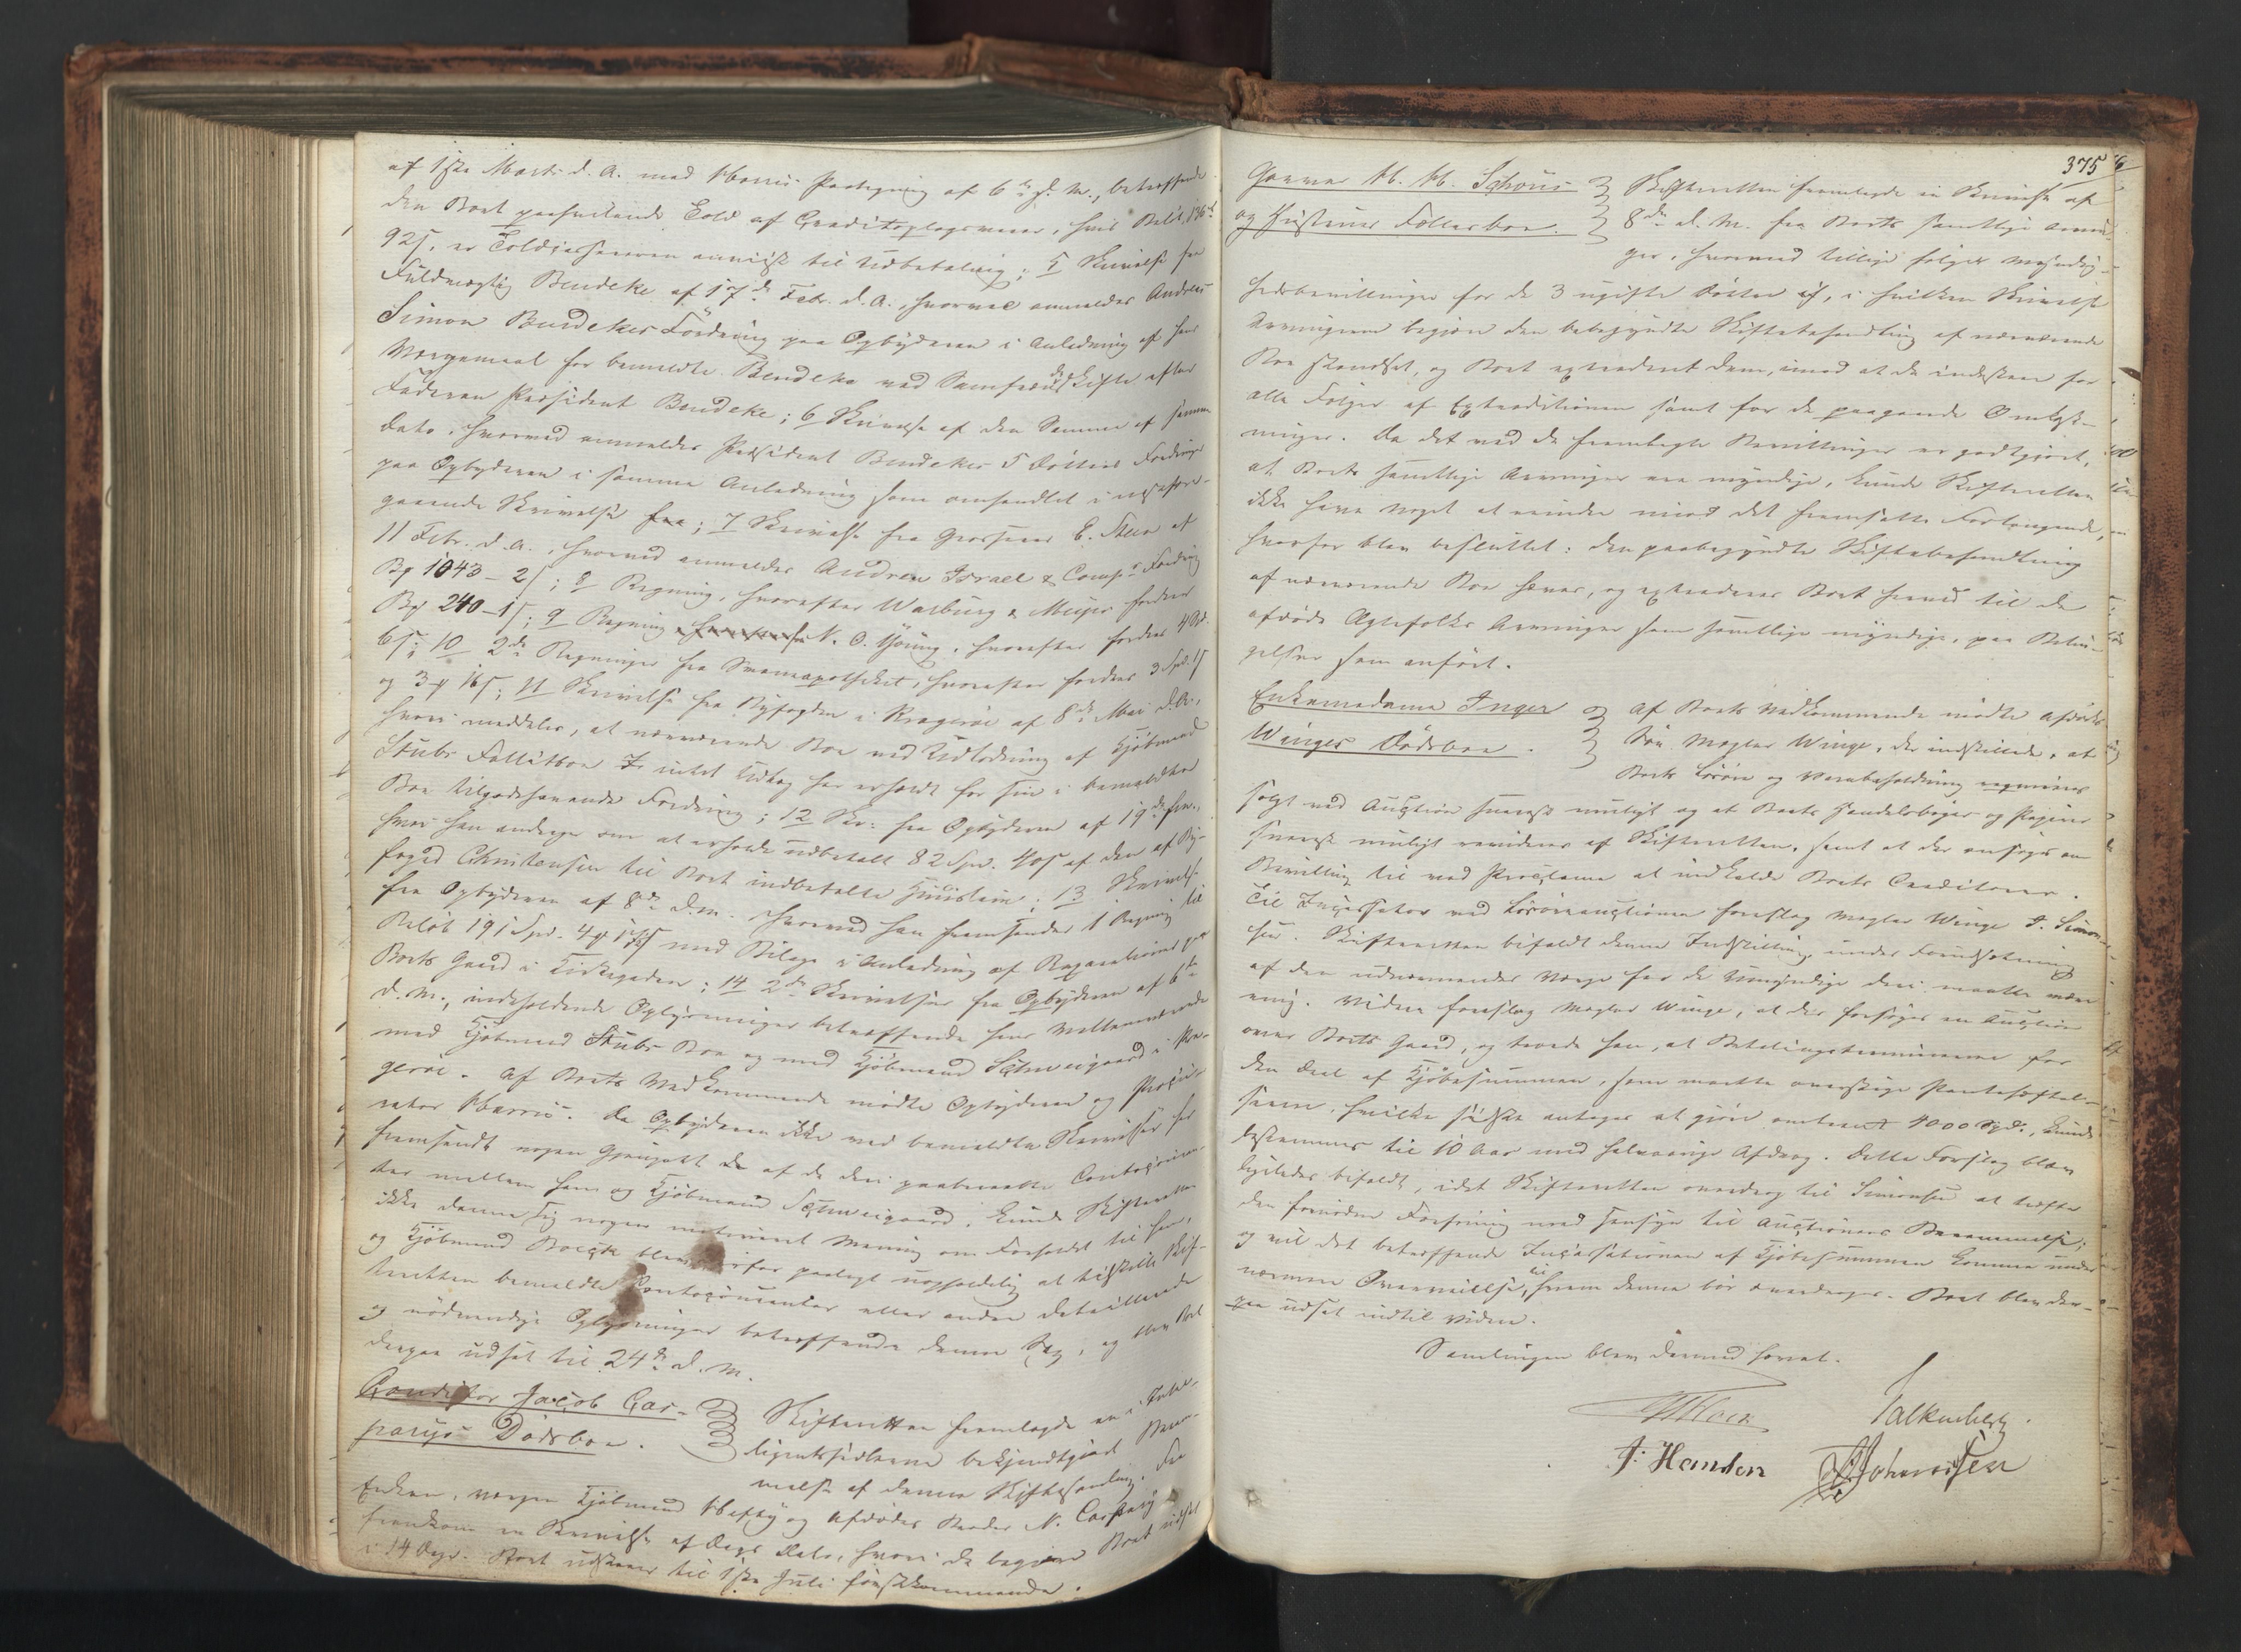 af 1ste Marts d. A. med Morris Paategning af 6te d. M., betræffende
den Boet paahvilende Told af Creditoplagsvarer, hvis Beløb, 136
92 s, er Toldcassereren anviist til Udbetaling; 5 Skrivelse fra
Fuldmægtig Bendeke af 17de Febr. d. A., hvorved anmeldes Andreas
Simon Bendekes Fordring paa Opbyderen i Anledning af hans
Værgemaal for bemeldte Bendeke ved Samfrændeskifte efter
Faderen Præsident Bendeke; 6 Skrivelse af den Samme af samme
Dato, hvorved anmeldes Præsident Bendekes 5 Døttres Fordringer
paa Opbyderen i samme Anledning som omhandlet i næstfore-
gaaende Skrivelse; 7 Skrivelse fra Grosserer C. Steen af
11 Febr. d. A., hvorved anmeldes Andrew Israel & Comp.s Fordring
Bg 1043 - 2 s; 8 Regning, hvorefter Warburg & Meyer fordrer
Bg 240 - 1 s; 9 Regning fra N. O. Young, hvorefter fordres 4
6 s; 10 2de Regninger fra Svaneapotheket, hvorefter fordres 3 Spd. 1 s
og 3 16 s; 11 Skrivelse fra Byfogden i Kragerøe af 8de Mai d. A.,
hvori meddeles, at nærværende Boe ved Udlodning af Kjøbmand
Stubs Fallitboe intet Udlæg har erholdt for sin i bemeldte
Boe tilgodehavende Fordring; 12 Skr: fra Opbyderen af 19de
hvori han andrager om at erholde udbetalt 82 Spd. af den af By-
foged Christensen til Boet indbetalte Huusleie; 13 Skrivelse
fra Opbyderen af 8de d. M. hvorved han fremsender 1 Regning til
Beløb 191 Spd. 4 15 s med Bilage i Anledning af Reparationer paa
Boets Gaard i Kirkegaden; 14 2de Skrivelser fra Opbyderen af 6te
d. M., indeholdende Oplysninger betræffende hans Mellemværende
med Kjøbmand Stubs Boe og med Kjøbmand Schweigaard i Kra-
gerøe. Af Boets Vedkommende mødte Opbyderen og Procu-
rator Morris. Da Opbyderen ikke ved bemeldte Skrivelser har
fremsendt nogen Gjenpart af de deri paaberaabte Contocouran-
ter mellem ham og Kjøbmand Schweigaard, kunde Skifteretten
ikke danne sig nogen motiveret Mening om Forholdet til ham,
og Kjøbmand Boeck blev derfor paalagt uopholdelig at tilstille Skif-
teretten bemeldte Contocouranter eller andre detaillerede
og nødvendige Oplysninger betræffende denne Sag, og blev Boet
derpaa udsat til 24de d. M.
Conditor Jacob Cas-
parys Dødsboe.
Skifteretten fremlagde en i Intel-
ligentssedlerne bekjendtgjort Beram-
melse af denne Skiftesamling. Fra
Enken, værgen Kjøbmand Heftye og Afdødes Broder N. Caspary
fremkom en Skrivelse af Dags Dato, hvori de begjere Boet udsat
i 14 Dage. Boet udsættes til 1ste Juli førstkommende.
375
Garver M. M. Schous
og Hustrues Fællesboe.
Skifteretten fremlagde en Skrivelse af
8de d. M. fra Boets samtlige Arvin-
ger, hvorved tillige følger Myndig-
hedsbevillinger for de 3 ugifte Døttre, i hvilken Skrivelse
Arvingerne begjere den begyndte Skiftebehandling af nærværende
Boe standset, og Boet extraderet dem, imod at de indestaae for
alle Følger af Extraditionen samt for de paagaaende Omkost-
ninger. Da det ved de fremlagte Bevillinger er godtgjort,
at Boets samtlige Arvinger ere myndige, kunde Skifteretten
ikke have noget at erindre imod det fremsatte Forlangende,
hvorfor blev besluttet: den paabegyndte Skiftebehandling
af nærværende Boe hæves, og extraderes Boet herved til de
afdøde Ægtefolks Arvinger som samtlige myndige, paa Betin-
gelser som anført.
Enkemadame Inger
Winges Dødsboe.
Af Boets Vedkommende mødte Afdødes
Søn Mægler Winge, der indstillede, at
Boets Løsøre og Varebeholdning
solgt ved Auction snarest muligt og at Boets Handelsbøger og Papirer
snarest muligt revideres af Skifteretten, samt at der ansøges om
Bevilling til ved Proclama at indkalde Boets Creditorer.
Til Incassator ved Løsøreauctionen foreslog Mægler Winge J. Simon-
sen. Skifteretten bifaldt denne Indstilling under Forudsætning
af den udnævnendes Værge for de Umyndige deri maatte være
enig. Videre foreslog Mægler Winge, at der forsøges en Auction
over Boets Gaard, og troede han, at Betalingsterminerne for
den Deel af Kjøbesummen, som maatte overstige Pantehæftel-
serne, hvilke sidste antages at gjøre omtrent 4000 Spd., kunde
bestemmes til 10 Aar med halvaarige Afdrag. Dette Forslag blev
ligeledes bifaldt, idet Skifteretten overdrog til Simonsen at træffe
den fornødne Foretning med Hensyn til Auctionens Berammelse;
og vil det betræffende Incassationen af Kjøbesummen komme under
nærmere Overveielse, til hvem denne bør overdrages. Boet blev der-
paa udsat indtil videre.
Samlingen blev dermed hævet.
Falkenberg.
J. Hansen
Johannsen